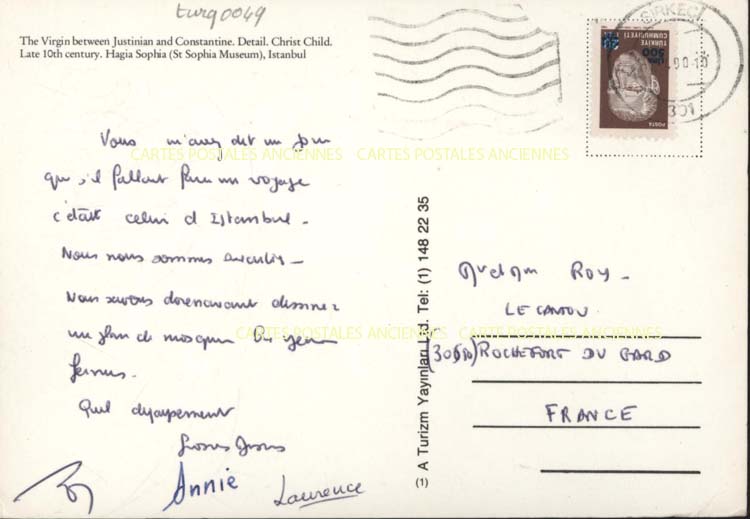 turq0049
The Virgin between Justinian and Constantine. Detail. Christ Child.
Late 10th century. Hagia Sophia (St Sophia Museum), Istanbul
SIRKECI
90-10
301
TÜRKİYE
CUMHURİYETİ
POSTA
Vous m'avez dit un jour
que s'il fallait faire un voyage
c'était celui d Istanbul -
CARTES POSTALES ANCIENNES CARTES POSTALES ANCIENNES
Nous nous sommes
Nous savons dorenavant dessiner
un plan de mosquée les yeux
fermés.
Quel dépaysement
Annie
Laurence
CARTES POSTALES ANCIENNES CARTES POSTALES ANCIENNES
(1) A Turizm Yayınları Ltd. Tel: (1) 148 22 35
Roy -
LE CANTOU
ROCHEFORT DU GARD
FRANCE